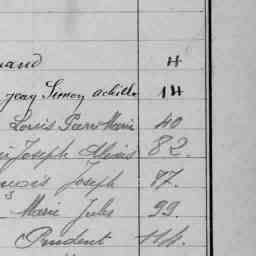 nand 4
Jean Simon achille 14
Louis Pierre Marie 40
Joseph Alexis 82.
çois Joseph 87.
Marie Jules 99.
Prudent 114.